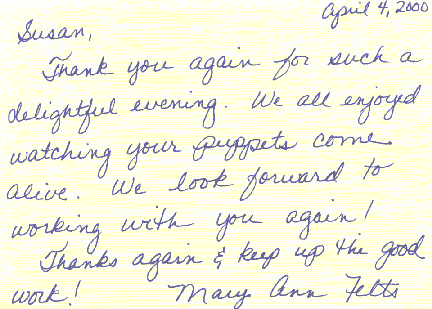 April 4, 2000
Susan,
Thank you again for such a
delightful evening. We all enjoyed
watching your puppets come
alive. We look forward to
working with you again!
Thanks again & keep up the good
work! Mary Ann Felts